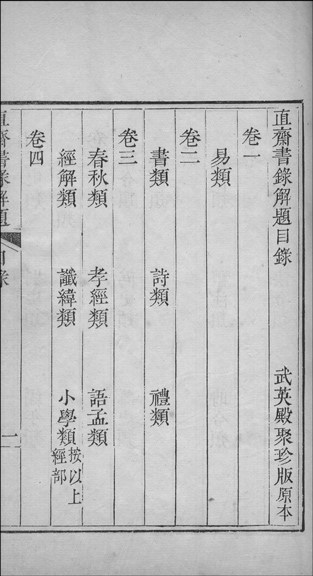 直齋書錄解題目錄　武英殿聚珍版原本
卷一
易類
卷二
書類　詩類　禮類
卷三
春秋類　孝經類　語孟類
經解類　讖緯類　小學類按以上經部
卷四
直齋書錄解題　目錄　一